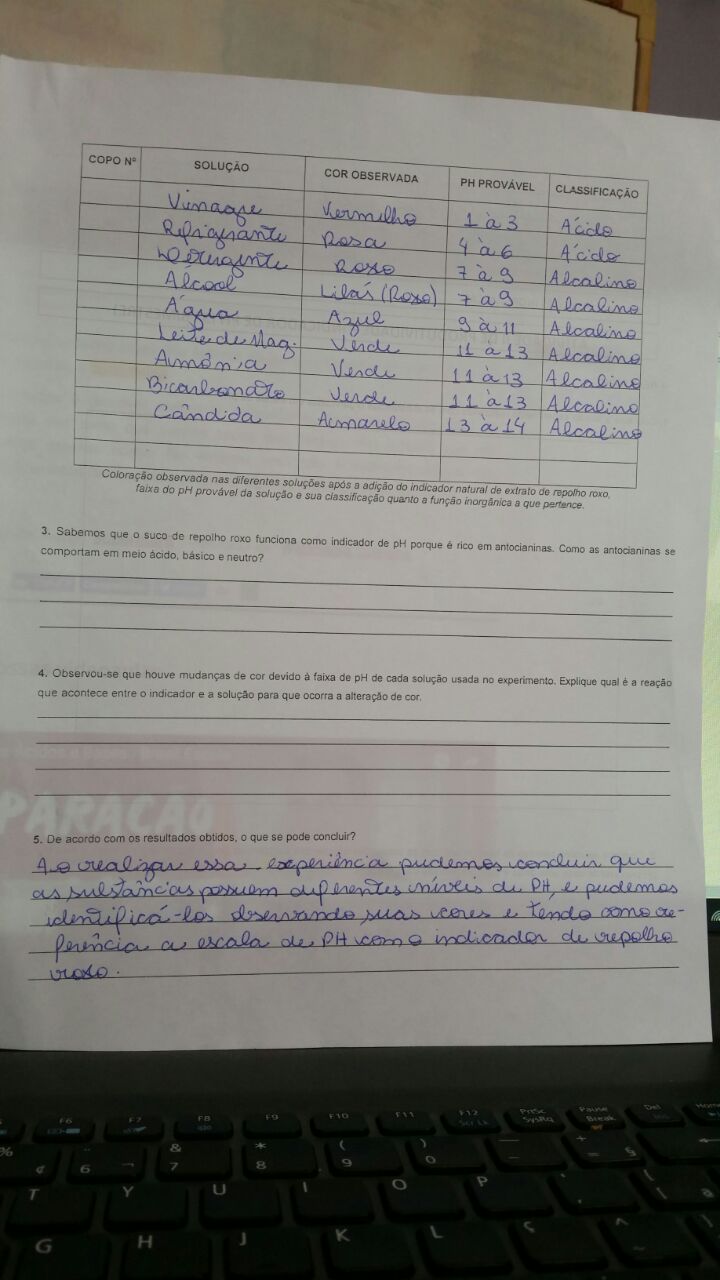 COPO Nº SOLUÇÃO COR OBSERVADA PH PROVÁVEL CLASSIFICAÇÃO
Vinagre Vermelho 1 à 3 Ácido
Refrigerante Rosa 4 à 6 Ácido
Detergente Roxo 7 à 9 Alcalino
Álcool Lilás (Roxo) 7 à 9 Alcalino
Água Azul 9 à 11 Alcalino
Leite de Mag. Verde 11 à 13 Alcalino
Amônia Verde 11 à 13 Alcalino
Bicarbonato Verde 11 à 13 Alcalino
Cândida Amarelo 13 à 14 Alcalino
Coloração observada nas diferentes soluções após a adição do indicador natural de extrato de repolho roxo,
faixa do pH provável da solução e sua classificação quanto a função inorgânica a que pertence.
3. Sabemos que o suco de repolho roxo funciona como indicador de pH porque é rico em antocianinas. Como as antocianinas se
comportam em meio ácido, básico e neutro?
4. Observou-se que houve mudanças de cor devido à faixa de pH de cada solução usada no experimento. Explique qual é a reação
que acontece entre o indicador e a solução para que ocorra a alteração de cor.
PARAÇÃO
5. De acordo com os resultados obtidos, o que se pode concluir?
Ao realizar essa experiência pudemos concluir que
as substâncias possuem diferentes níveis de PH, e pudemos
identificá-los observando suas cores e tendo como re-
ferência a escala de PH com o indicador de repolho
roxo.
F6 F7 F8 F9 F10 F11 F12 PrtSc Pause Del Home
Scr Lk SysRq Break
% & * ( ) _ +
¢ 6 ¬ 7 8 9 0 - = §
T Y U I O P
G H J K L Ç ^